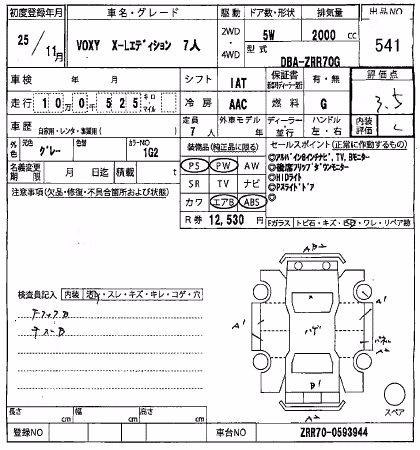 初度登録年月 車名・グレード 駆動 ドア数・形状 排気量 出品NO
25/11月 VOXY X-Lエディション 7人 2WD・4WD 5W 2000 cc 541
型式 DBA-ZRR70G
車検 年 月 シフト IAT 保証書 有・無 評価点
3.5
走行 10万0千525 キロ・マイル 冷房 AAC 燃料 G
車歴 自家用・レンタ・事業用( ) 定員 7人 外車モデル 年 ディーラー・並行 ハンドル 左・右 内装評価 C
色 元色 グレー 色替 カラーNO 1G2 装備品(純正品に限る) セールスポイント(正常に作動するもの)
名義変更期限 月 日迄 積載 t PS PW AW
◎アルパイン8インチナビ、TV、Bモニター
◎後席フリップダウンモニター
注意事項(欠品・修復・不具合箇所および状態) SR TV ナビ
◎HIDライト
◎Pスライドドア
カワ エアB ABS
R券 12,530 円 Fガラス トビ石・キズ・ ・ワレ・リペア跡
検査員記入 内装 ・スレ・キズ・キレ・コゲ・穴
A2
A1
A1
A1
A2
B1
A2
長さ cm 幅 cm 高さ cm スペア
登録NO 車台NO ZRR70-0593944